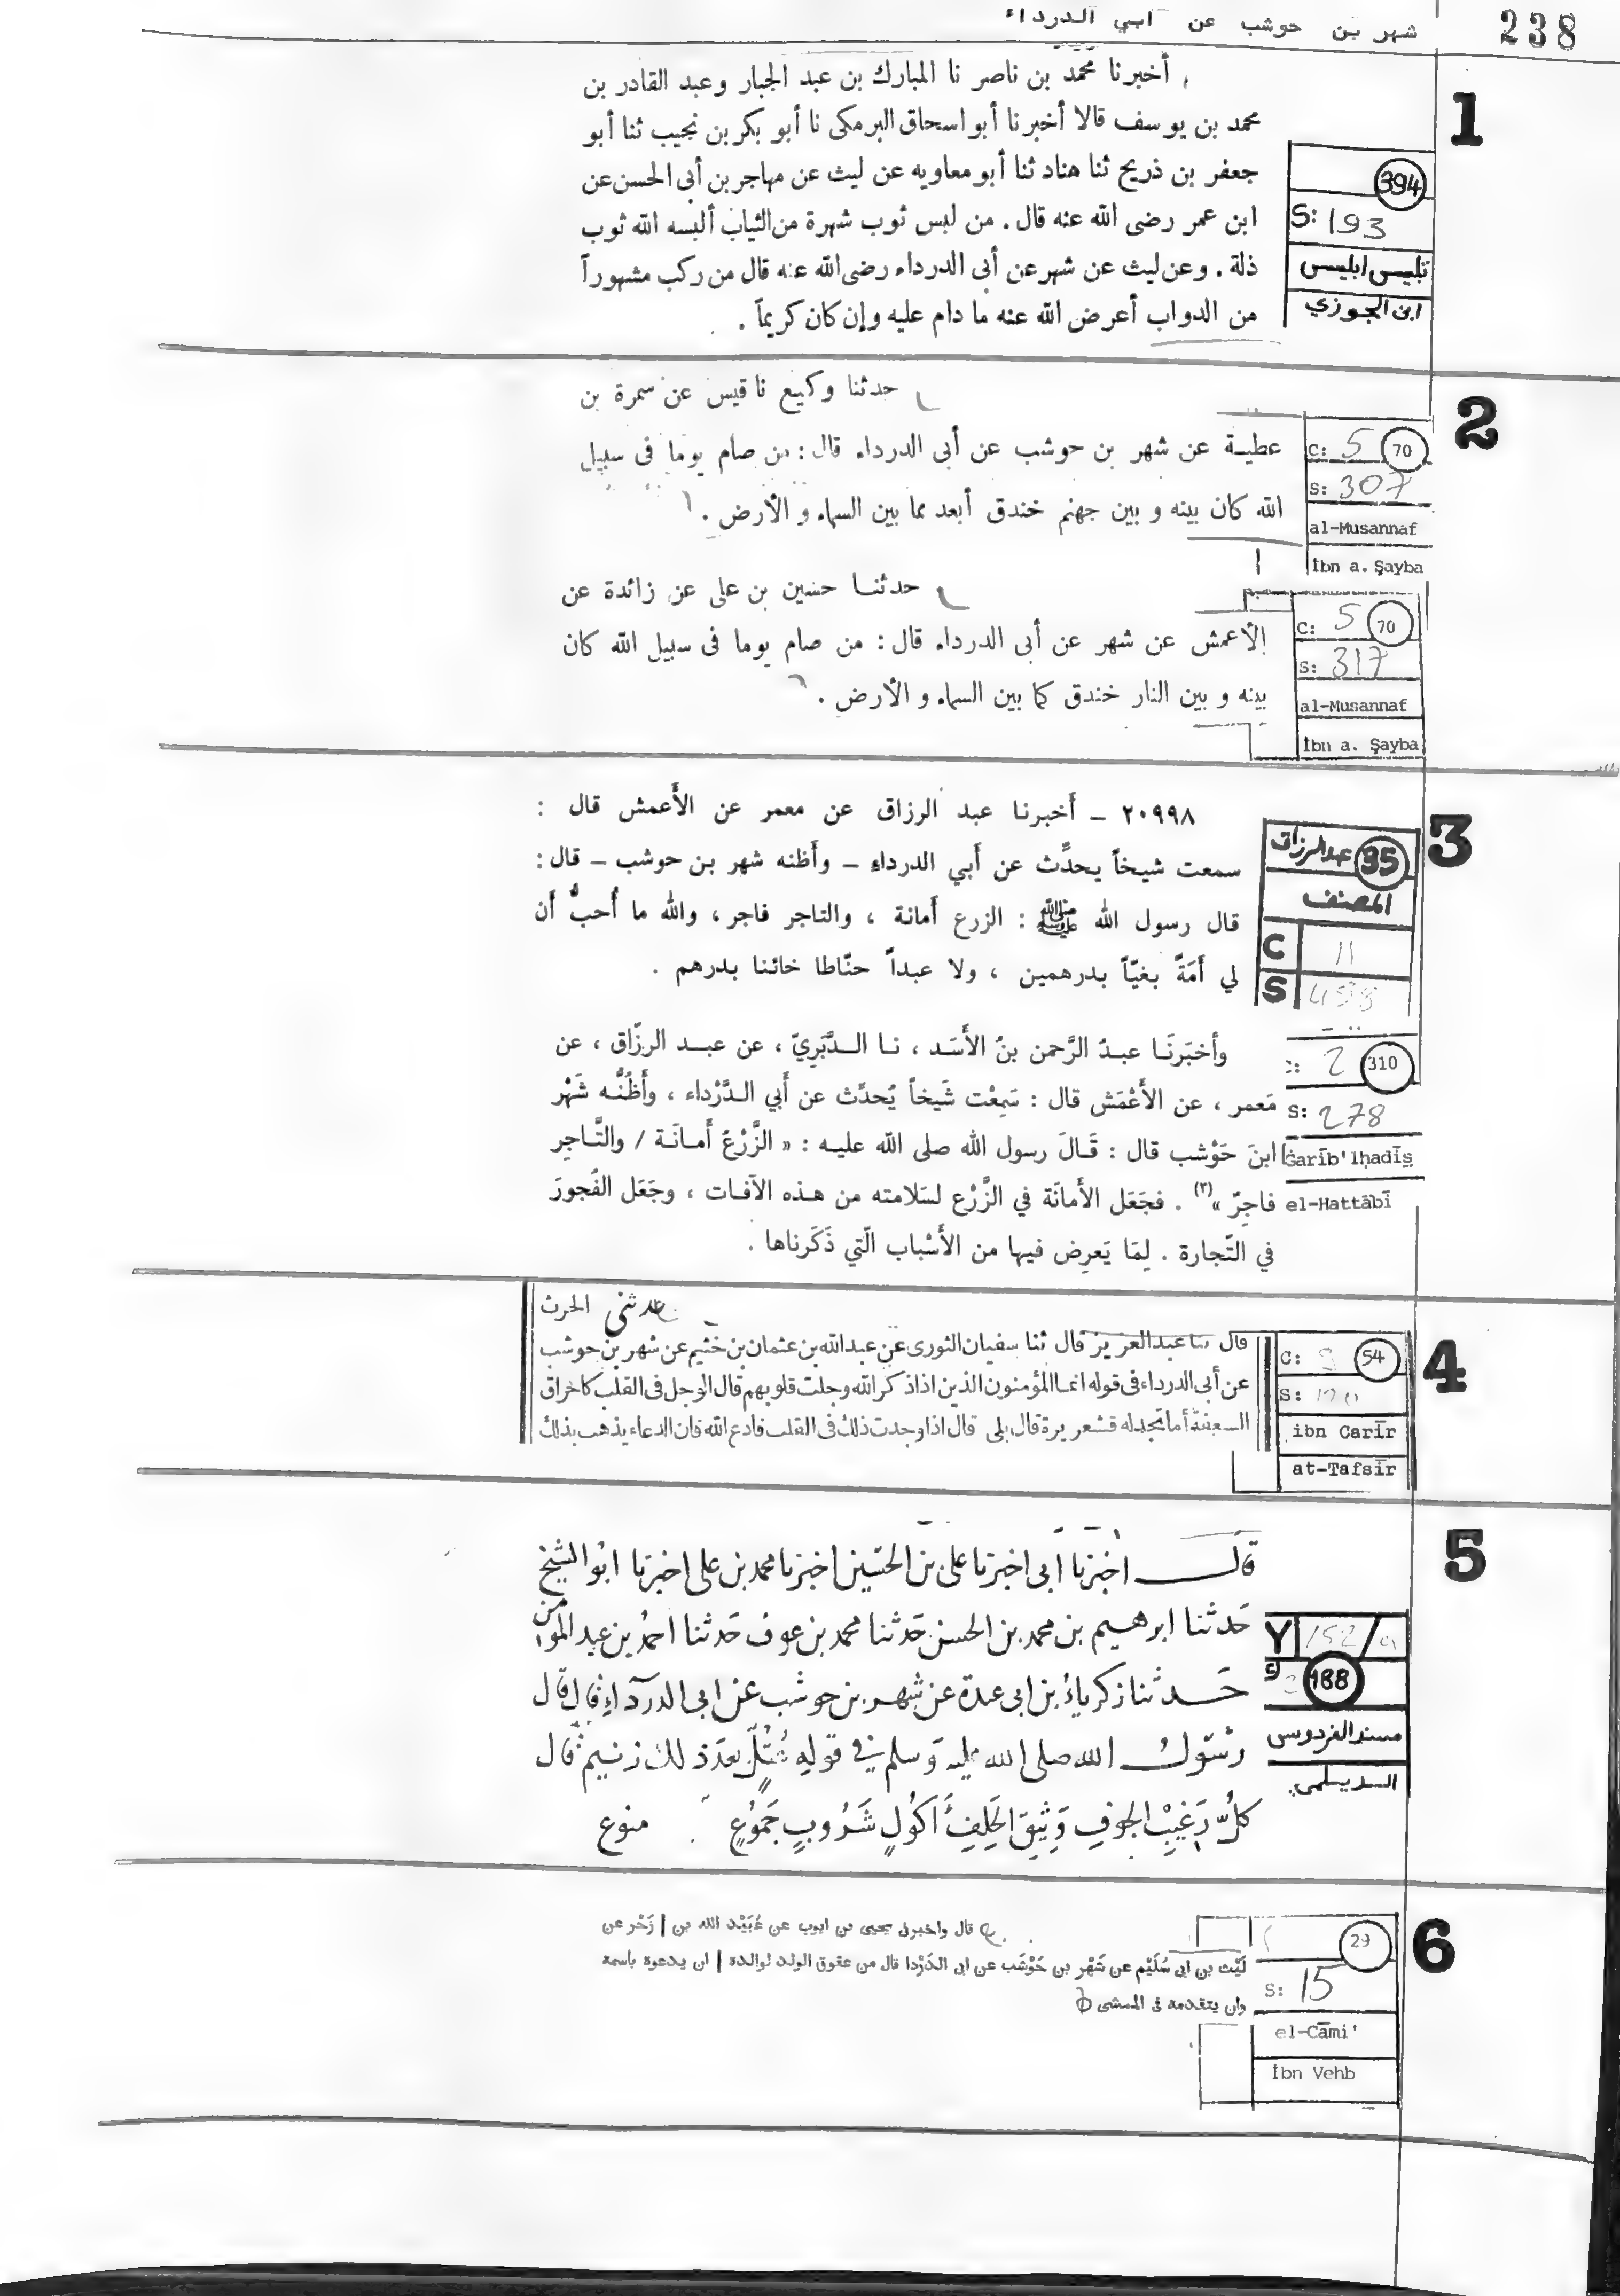 شهر بن حوشب عن ابي الدرداء
238
1
أخبرنا محمد بن ناصر نا المبارك بن عبد الجبار وعبد القادر بن
محمد بن يوسف قالا أخبرنا أبو اسحاق البرمكى نا أبو بكر بن نجيب ثنا أبو
جعفر بن ذريح ثنا هناد ثنا أبو معاويه عن ليث عن مهاجر بن أبى الحسن عن
ابن عمر رضى الله عنه قال . من لبس ثوب شهرة من الثياب ألبسه الله ثوب
ذلة . وعن ليث عن شهر عن أبى الدرداء رضى الله عنه قال من ركب مشهوراً
من الدواب أعرض الله عنه ما دام عليه وإن كان كريماً .
394
S: 193
تلبيس ابليس
ابن الجوزي
2
حدثنا وكيع نا قيس عن سمرة بن
عطيـة عن شهر بن حوشب عن أبى الدرداء قال : من صام يوما فى سبيل
الله كان بينه و بين جهنم خندق أبعد مما بين السماء و الأرض .
C: 5 70
S: 307
al-Musannaf
İbn a. Şayba
حدثنـا حسين بن على عن زائدة عن
الأعمش عن شهر عن أبى الدرداء قال : من صام يوما فى سبيل الله كان
بينه و بين النار خندق كما بين السماء و الأرض .
C: 5 70
S: 317
al-Musannaf
İbn a. Şayba
3
٢٠٩٩٨ – أخبرنا عبد الرزاق عن معمر عن الأعمش قال :
سمعت شيخاً يحدِّث عن أبي الدرداء – وأظنه شهر بن حوشب – قال :
قال رسول الله ﷺ : الزرع أمانة ، والتاجر فاجر ، والله ما أُحبُّ أن
لي أَمَةً بغيّاً بدرهمين ، ولا عبداً حنّاطا خائنا بدرهم .
عبد الرزاق 35
المصنف
C 11
S
وأخبَرنَـا عبـدُ الرَّحمن بنُ الأَسَـد ، نـا الـدَّبَرِيّ ، عن عبـد الرزّاق ، عن
مَعمر ، عن الأَعْمَش قال : سَمِعْت شَيخاً يُحدِّث عن أبي الـدَّرْداء ، وأَظُنُّـه شَهْر
ابنَ حَوْشب قال : قَـالَ رسول الله صلى الله عليـه : « الزَّرْعُ أَمـانَـة / والتَّـاجِر
فاجِرٌ » (٣) . فجَعَل الأَمانَة في الزَّرْع لسَلامته من هـذه الآفـات ، وجَعَل الفُجورَ
في التّجارة . لِمَا يَعرِض فيها من الأَسْباب الّتي ذَكَرناها .
C: 2 310
S: 278
Ġarīb'lḥadīs̱
el-Hattâbî
4
حدثني الحرث
قال ثنا عبد العزيز قال ثنا سفيان الثورى عن عبد الله بن عثمان بن خثيم عن شهر بن حوشب
عن أبى الدرداء فى قوله انما المؤمنون الذين اذا ذكر الله وجلت قلوبهم قال الوجل فى القلب كاحراق
السعفة أما تجد له قشعريرة قال بلى قال اذا وجدت ذلك فى القلب فادع الله فان الدعاء يذهب بذلك
C: 54
S:
ibn Carīr
at-Tafsīr
5
قال اخبرنا ابى اخبرنا على بن الحسين اخبرنا محمد بن على اخبرنا ابو الشيخ
حدثنا ابرهيم بن محمد بن الحسن حدثنا محمد بن عوف حدثنا احمد بن عبد المؤمن
حدثنا زكرياء بن ابى عبدة عن شهر بن حوشب عن ابى الدرداء قال قال
رسول الله صلى الله عليه وسلم فى قوله عُتُلٍّ بعد ذلك زنيم قال
كلُّ رَغِيْبِ الجوفِ وَثِيقِ الخلقِ أَكُولٍ شَرُوبٍ جَمُوعٍ منوع
Y 152/
188
مسند الفردوس
الديلمي
6
قال واخبرنى يحيى بن ايوب عن عُبَيْد الله بن | زَحْر عن
لَيْث بن ابى سُلَيْم عن شَهْر بن حَوْشَب عن ابى الدَرْدا قال من عقوق الولد لوالدة | ان يدعوة باسمة
وان يتقدمه فى المشى
29
S: 15
el-Câmi'
İbn Vehb